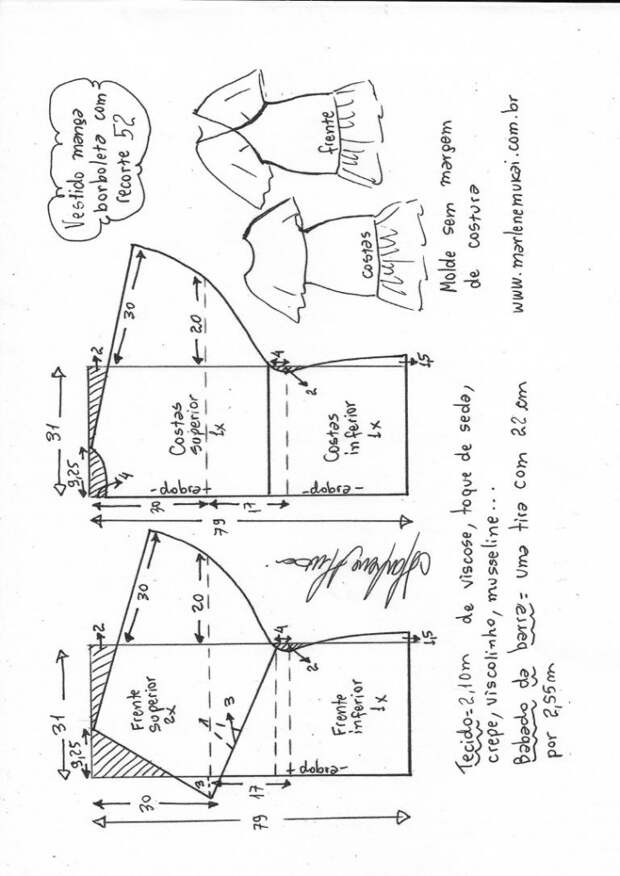 Vestido manga
borboleta com
recorte 52
31
9,25
2
30
20
4
2
Frente
superior
2x
1
3
3
30
17
79
Frente
inferior
1x
-dobra-
1,5
31
9,25
4
2
30
20
4
2
Costas
superior
1x
-dobra-
30
17
79
Costas
inferior
1x
-dobra-
1,5
frente
costas
Molde sem margem
de costura
www.marlenemukai.com.br
Tecido=2,10m de viscose, toque de seda,
crepe, viscolinho, musseline...
Babado da barra= uma tira com 22 cm
por 2,55m